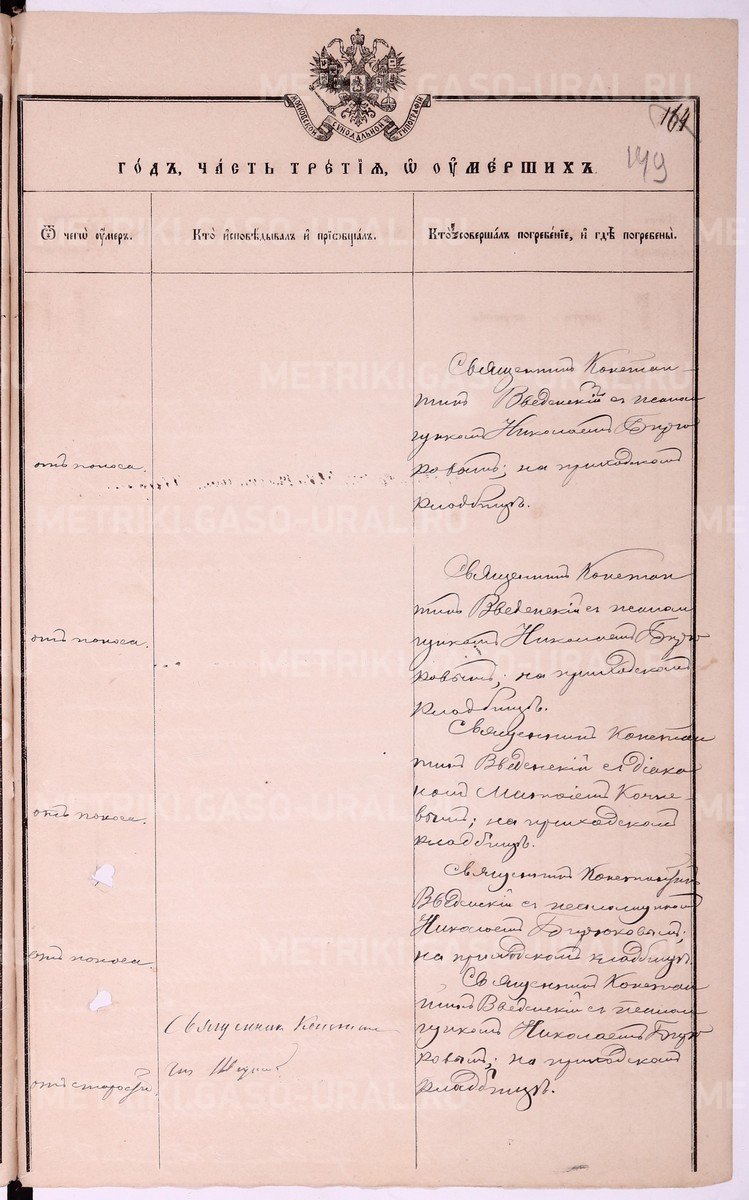 164
149
МОСКОВСКОЙ СѴНОДАЛЬНОЙ ТИПОГРАФІИ
ГОДЪ, ЧАСТЬ ТРЕТІЯ, Ѡ ОУМЕРШИХЪ.
Ѿ чегѡ оумеръ.
Кто исповѣдывалъ и пріобщалъ.
Кто совершалъ погребеніе, и гдѣ погребены.
отъ поноса.
Священникъ Констан-
тинъ Введенскій съ псалом
щикомъ Николаемъ Бирю
ковымъ; на приходскомъ
кладбищѣ.
отъ поноса.
Священникъ Констан
тинъ Введенскій съ псалом
щикомъ Николаемъ Бирю
ковымъ; на приходскомъ
кладбищѣ.
отъ поноса.
Священникъ Констан
тинъ Введенскій съ діако
номъ
вымъ; на приходскомъ
кладбищѣ.
отъ поноса.
Священникъ Константинъ
Введенскій съ псаломщикомъ
Николаемъ Бирюковымъ;
на приходскомъ кладбищѣ.
отъ старости.
Священникъ Констан
тинъ
Священникъ Констан
тинъ Введенскій съ псалом
щикомъ Николаемъ Бирю
ковымъ; на приходскомъ
кладбищѣ.
METRIKI.GASO-URAL.RU